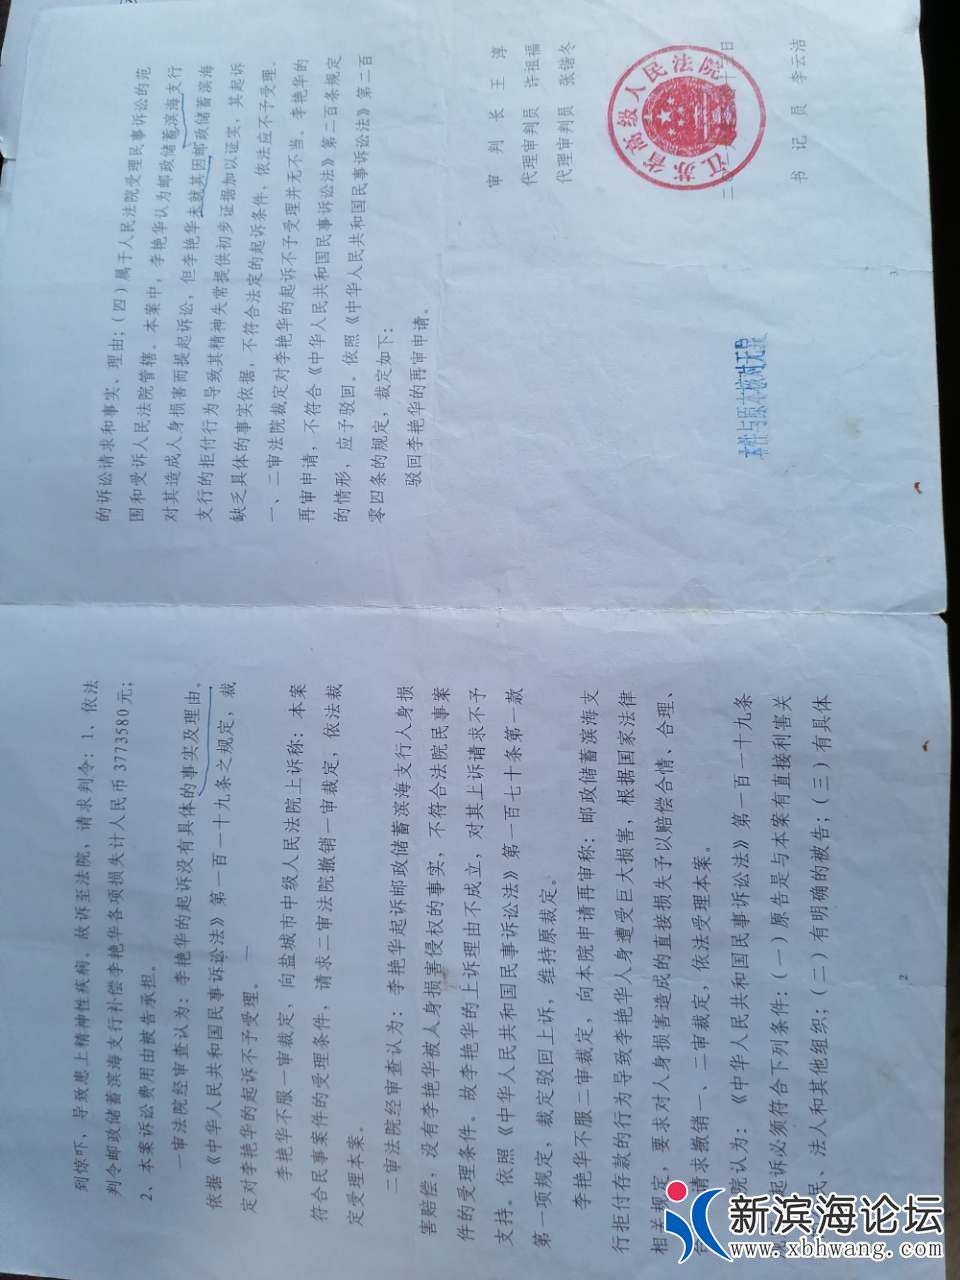 到惊吓，导致患上精神性疾病。故诉至法院，请求判令：1、依法
判令邮政储蓄滨海支行补偿李艳华各项损失计人民币3773580元；
2、本案诉讼费用由被告承担。
一审法院经审查认为：李艳华的起诉没有具体的事实及理由。
依据《中华人民共和国民事诉讼法》第一百一十九条之规定，裁
定对李艳华的起诉不予受理。
李艳华不服一审裁定，向盐城市中级人民法院上诉称：本案
符合民事案件的受理条件，请求二审法院撤销一审裁定，依法裁
定受理本案。
二审法院经审查认为：李艳华起诉邮政储蓄滨海支行人身损
害赔偿，没有李艳华被人身损害侵权的事实，不符合法院民事案
件的受理条件。故李艳华的上诉理由不成立，对其上诉请求不予
支持。依照《中华人民共和国民事诉讼法》第一百七十条第一款
第一项规定，裁定驳回上诉，维持原裁定。
李艳华不服二审裁定，向本院申请再审称：邮政储蓄滨海支
行拒付存款的行为导致李艳华人身遭受巨大损害，根据国家法律
相关规定，要求对人身损害造成的直接损失予以赔偿合情、合理、
请求撤销一、二审裁定，依法受理本案。
院认为：《中华人民共和国民事诉讼法》第一百一十九条
起诉必须符合下列条件：（一）原告是与本案有直接利害关
民、法人和其他组织；（二）有明确的被告；（三）有具体
2
的诉讼请求和事实、理由；（四）属于人民法院受理民事诉讼的范
围和受诉人民法院管辖。本案中，李艳华认为邮政储蓄滨海支行
对其造成人身损害而提起诉讼，但李艳华未就其因邮政储蓄滨海
支行的拒付行为导致其精神失常提供初步证据加以证实，其起诉
缺乏具体的事实依据，不符合法定的起诉条件，依法应不予受理。
一、二审法院裁定对李艳华的起诉不予受理并无不当。李艳华的
再审申请，不符合《中华人民共和国民事诉讼法》第二百条规定
的情形，应予驳回。依照《中华人民共和国民事诉讼法》第二百
零四条的规定，裁定如下：
驳回李艳华的再审申请。
审 判 长 王 淳
代理审判员 许祖福
代理审判员 张锴冬
江苏省高级人民法院
二
十
日
书 记 员 李云洁
本件与原本核对无异
3
新滨海论坛
www.xbhwang.com